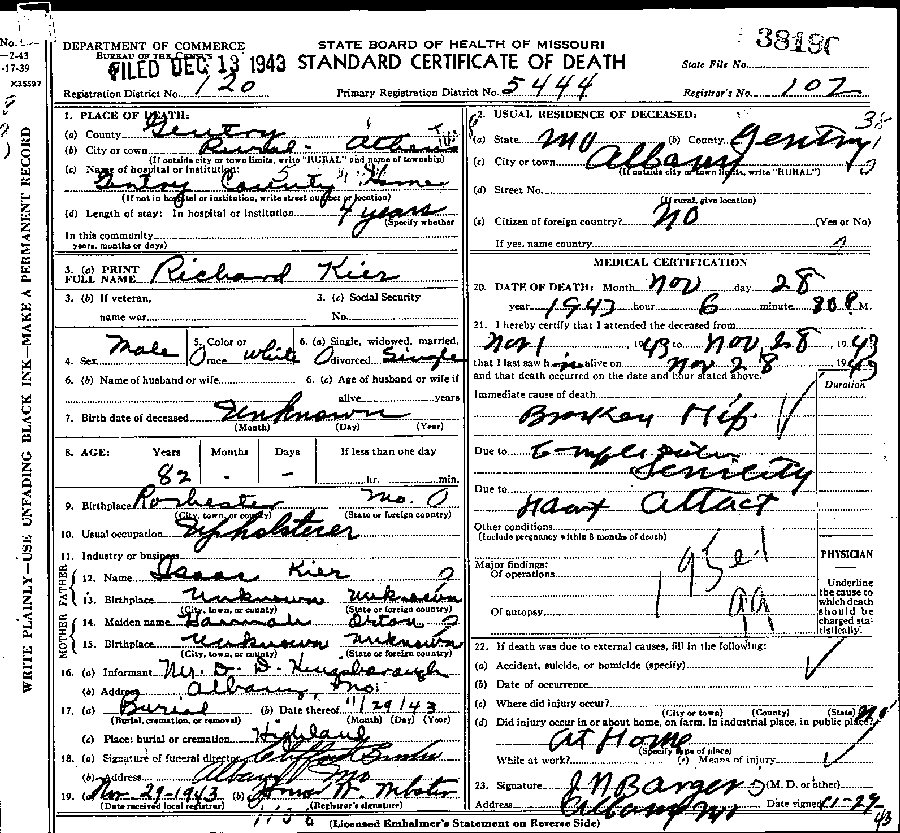 No.
-2-43
-17-39
X35597
WRITE PLAINLY—USE UNFADING BLACK INK—MAKE A PERMANENT RECORD
38190
DEPARTMENT OF COMMERCE
BUREAU OF THE CENSUS
STATE BOARD OF HEALTH OF MISSOURI
FILED DEC 13 1943
STANDARD CERTIFICATE OF DEATH
State File No.
Registration District No. 120
Primary Registration District No. 5444
Registrar's No. 107
1. PLACE OF DEATH:
(a) County Gentry
(b) City or town Rural - Athens
(If outside city or town limits, write "RURAL" and name of township)
(c) Name of hospital or institution:
Gentry County Home
(If not in hospital or institution, write street number or location)
(d) Length of stay: In hospital or institution 4 years
(Specify whether
In this community
years, months or days)
2. USUAL RESIDENCE OF DECEASED:
(a) State Mo (b) County Gentry
(c) City or town Albany
(If outside city or town limits, write "RURAL")
(d) Street No.
(If rural, give location)
(e) Citizen of foreign country? No (Yes or No)
If yes, name country
3. (a) PRINT
FULL NAME Richard Kier
3. (b) If veteran,
name war
3. (c) Social Security
No.
4. Sex Male
5. Color or
race White
6. (a) Single, widowed, married,
divorced Single
6. (b) Name of husband or wife
6. (c) Age of husband or wife if
alive years
7. Birth date of deceased Unknown
(Month) (Day) (Year)
8. AGE: Years Months Days If less than one day
82 - - hr. min.
9. Birthplace Rochester Mo. 0
(City, town, or county) (State or foreign country)
10. Usual occupation Upholsterer
11. Industry or business
FATHER
12. Name Isaac Kier
13. Birthplace Unknown Unknown
(City, town, or county) (State or foreign country)
MOTHER
14. Maiden name Hannah Orton
15. Birthplace Unknown Unknown
(City, town, or county) (State or foreign country)
16. (a) Informant Mr. D. D. Kingsborough
(b) Address Albany, Mo.
17. (a) Burial (b) Date thereof 11/29/43
(Burial, cremation, or removal) (Month) (Day) (Year)
(c) Place: burial or cremation Highland
18. (a) Signature of funeral director Clifford
(b) Address Albany Mo
19. (a) Nov. 29-1943 (b) Webster
(Date received local registrar) (Registrar's signature)
MEDICAL CERTIFICATION
20. DATE OF DEATH: Month Nov day 28
year 1943 hour 6 minute 30 P M.
21. I hereby certify that I attended the deceased from
Nov 1 1943 to Nov 28, 1943
that I last saw him alive on Nov 28 1943
and that death occurred on the date and hour stated above.
Duration
Immediate cause of death
Broken Hip
Due to
Senility
Due to
Heart Attact
Other conditions
(Include pregnancy within 3 months of death)
Major findings:
Of operations
Of autopsy
PHYSICIAN
Underline
the cause to
which death
should be
charged sta-
tistically.
22. If death was due to external causes, fill in the following:
(a) Accident, suicide, or homicide (specify)
(b) Date of occurrence
(c) Where did injury occur?
(City or town) (County) (State)
(d) Did injury occur in or about home, on farm, in industrial place, in public place?
At Home
(Specify type of place)
While at work? (e) Means of injury
23. Signature J N Barger (M. D. or other)
Address Albany Mo Date signed 11-29-43
(Licensed Embalmer's Statement on Reverse Side)